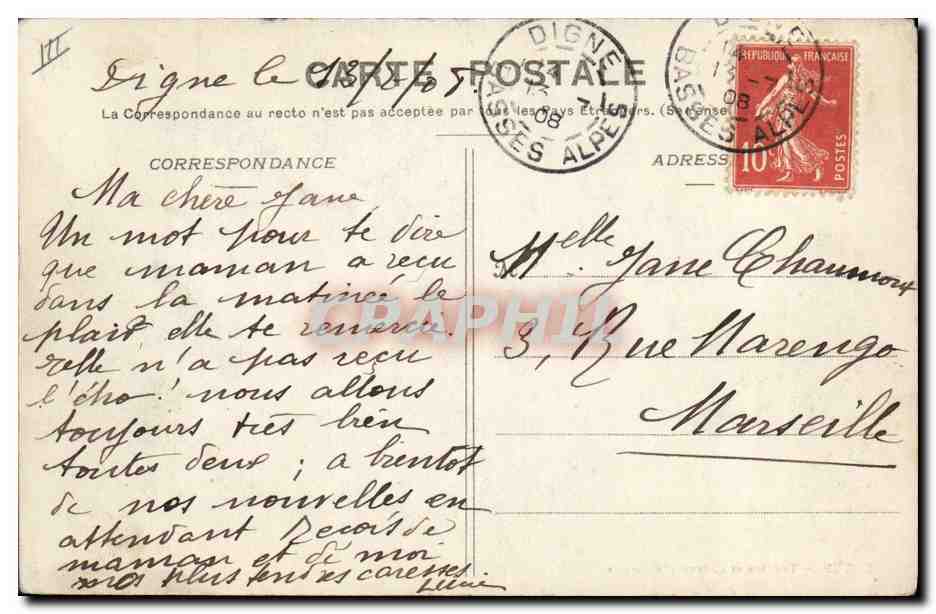 III
Digne le 13/1/08.
CARTE POSTALE
La Correspondance au recto n'est pas acceptée par tous les Pays Etrangers. (Se rense
DIGNE
13 -1
08
BASSES ALPES
DIGNE
13 -1
08
BASSES ALPES
REPUBLIQUE FRANÇAISE
10
POSTES
CORRESPONDANCE
ADRESS
Ma chère Jane
Un mot pour te dire
que maman a reçu
dans la matinée le
plait, elle te remercie.
elle n'a pas reçu
l'écho! nous allons
toujours très bien
toutes deux ; a bientot
de nos nouvelles en
attendant Reçois de
maman et de moi
nos plus tendres caresses
Lucie
Melle Jane Chaumont
3, Rue Marengo
Marseille
CPAPHIL